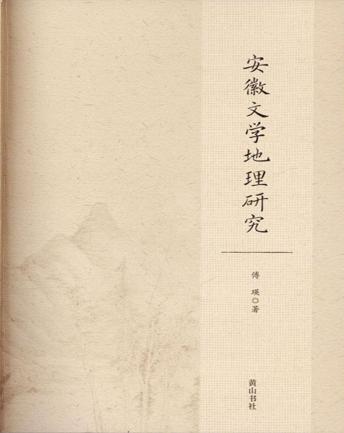 安徽文学地理研究
傅瑛◎著
黄山书社